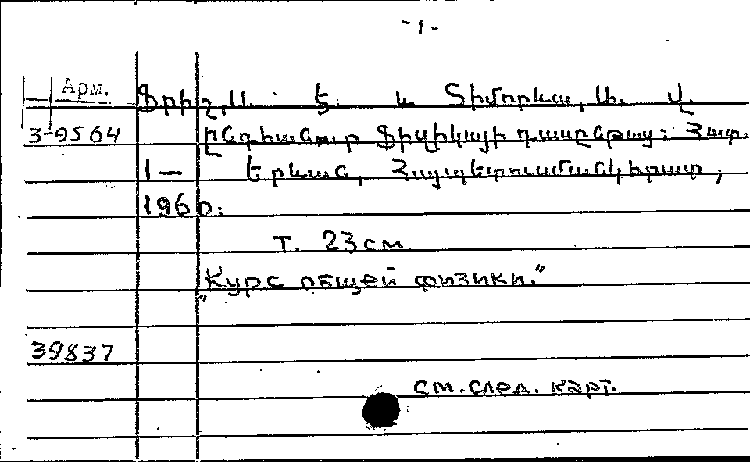 -1-
Арм. Ֆրիշ, Ս. Է. և Տիմորևա, Ա. Վ.
3-9564 Ընդհանուր ֆիզիկայի դասընթաց: Հատ.
1— Երևան, Հայպետուսմանկհրատ,
1960.
т. 23см.
"Курс общей физики."
39837
см. след. карт.